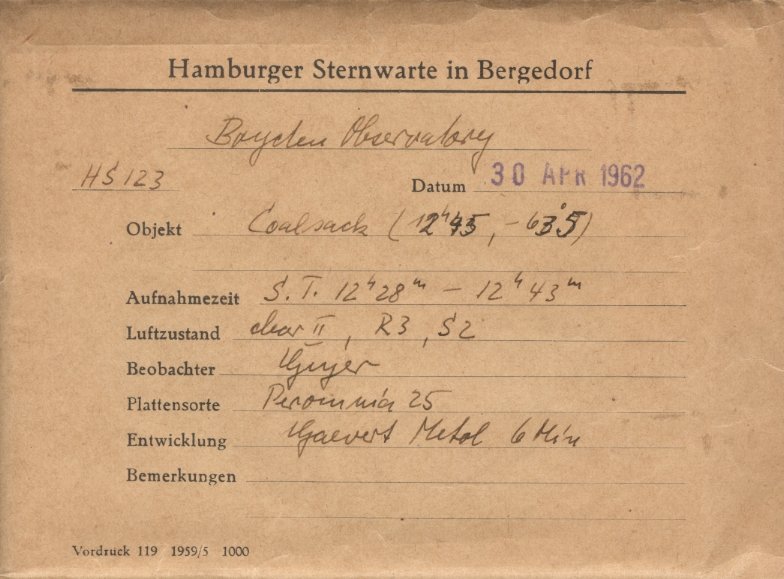 Hamburger Sternwarte in Bergedorf
Boyden Observatory
HS 123
Datum 30 APR 1962
Objekt Coalsack (12h45, -63°5)
Aufnahmezeit S.T. 12h28m - 12h43m
Luftzustand clear II, R3, S2
Beobachter
Plattensorte Peromnia 25
Entwicklung Gaevert Metol 6 Min
Bemerkungen
Vordruck 119 1959/5 1000